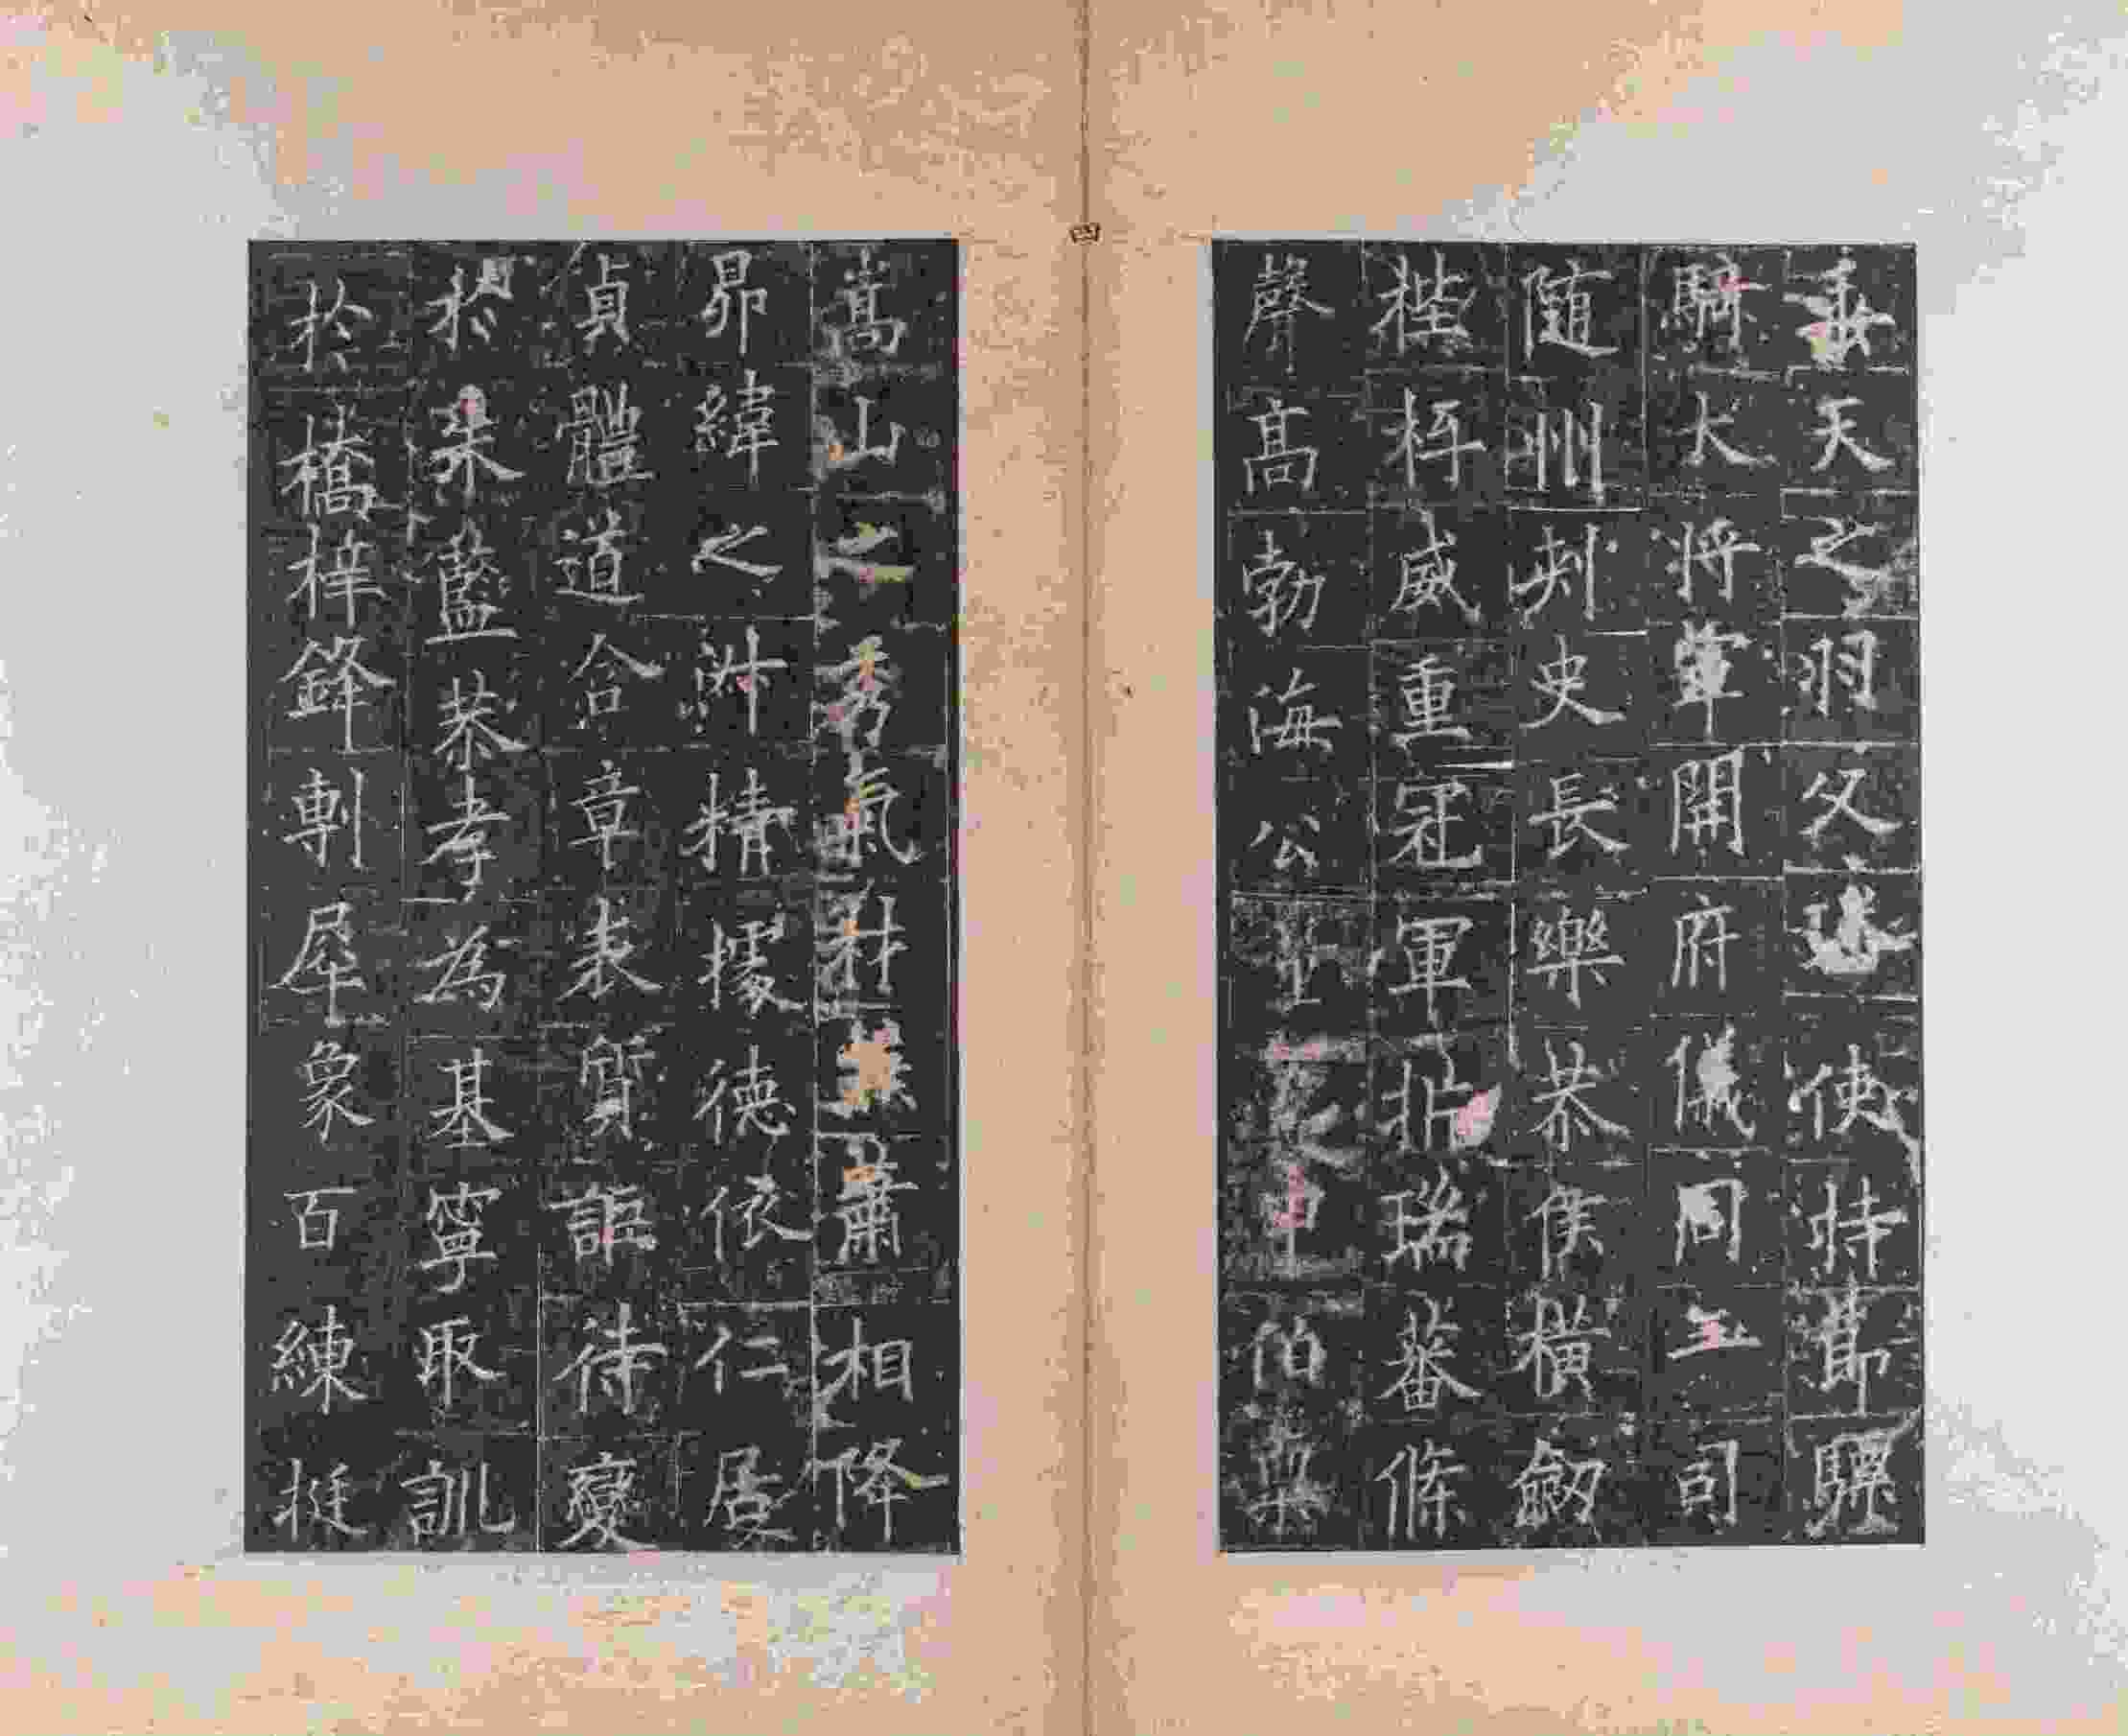 垂天之羽父璠使持節驃
騎大將軍開府儀同三司
隨州刺史長樂恭侯橫劒
梐枑威重冠軍析瑞蕃條
聲高勃海公量包申伯稟
嵩山之秀氣材兼蕭相降
昴緯之淑精據德依仁居
貞體道含章表質詎待變
於朱藍恭孝為基寧取訓
於橋梓鋒剸犀象百練挺